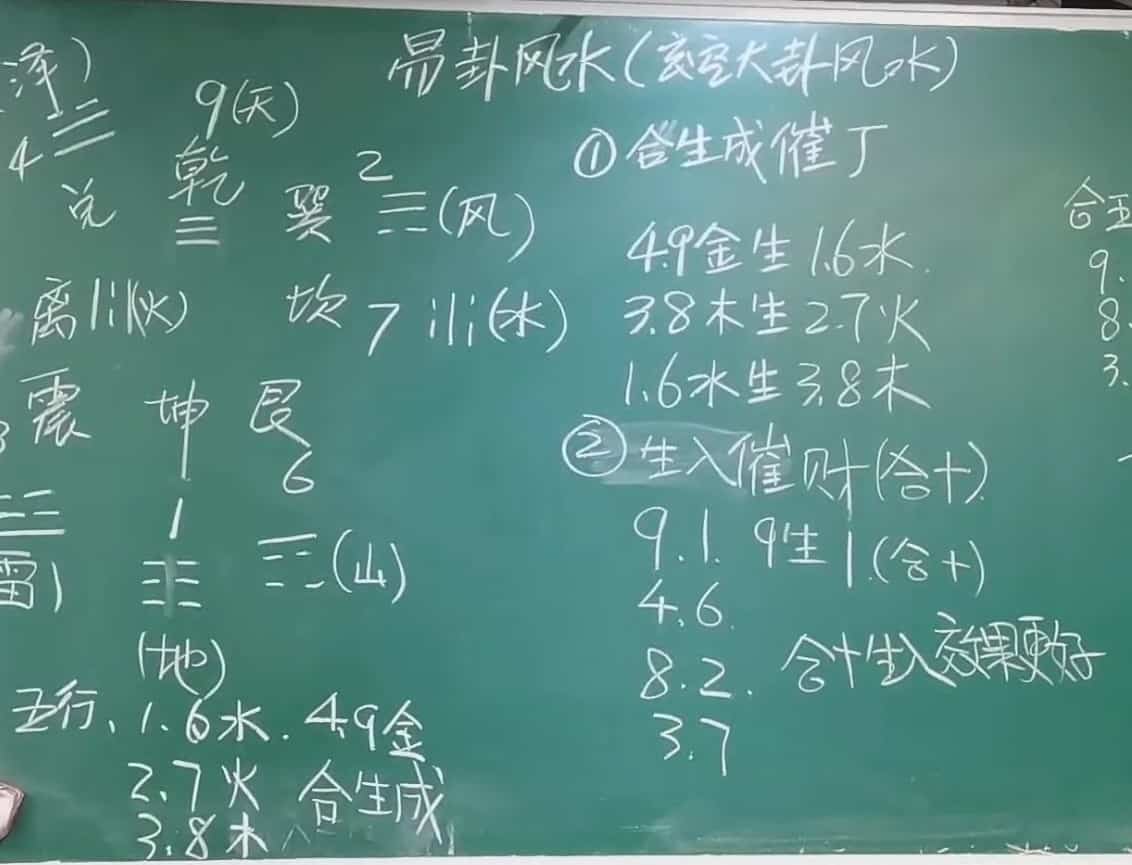 易卦风水(玄空大卦风水)
泽)
4 ☱
兑
9(天)
乾
☰
2
巽 ☴(风)
离 (火)
坎 7 (水)
3 震
☳
雷)
坤
1
☷
(地)
艮
6
☶(山)
五行、1.6水. 4.9金
2.7火 合生成
3.8木
①合生成催丁
4.9金生1.6水.
3.8木生2.7火
1.6水生3.8木
②生入催财(合十)
9.1. 9生1.(合十)
4.6.
8.2. 合十生入效果更好
3.7
合五
9.
8.
3.